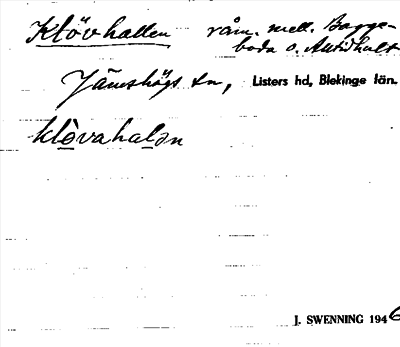 Klövhallen råm. mell. Bagge-
boda o. Autidhult
Jämshögs sn, Listers hd, Blekinge län.
klövahalən
J. SWENNING 1946